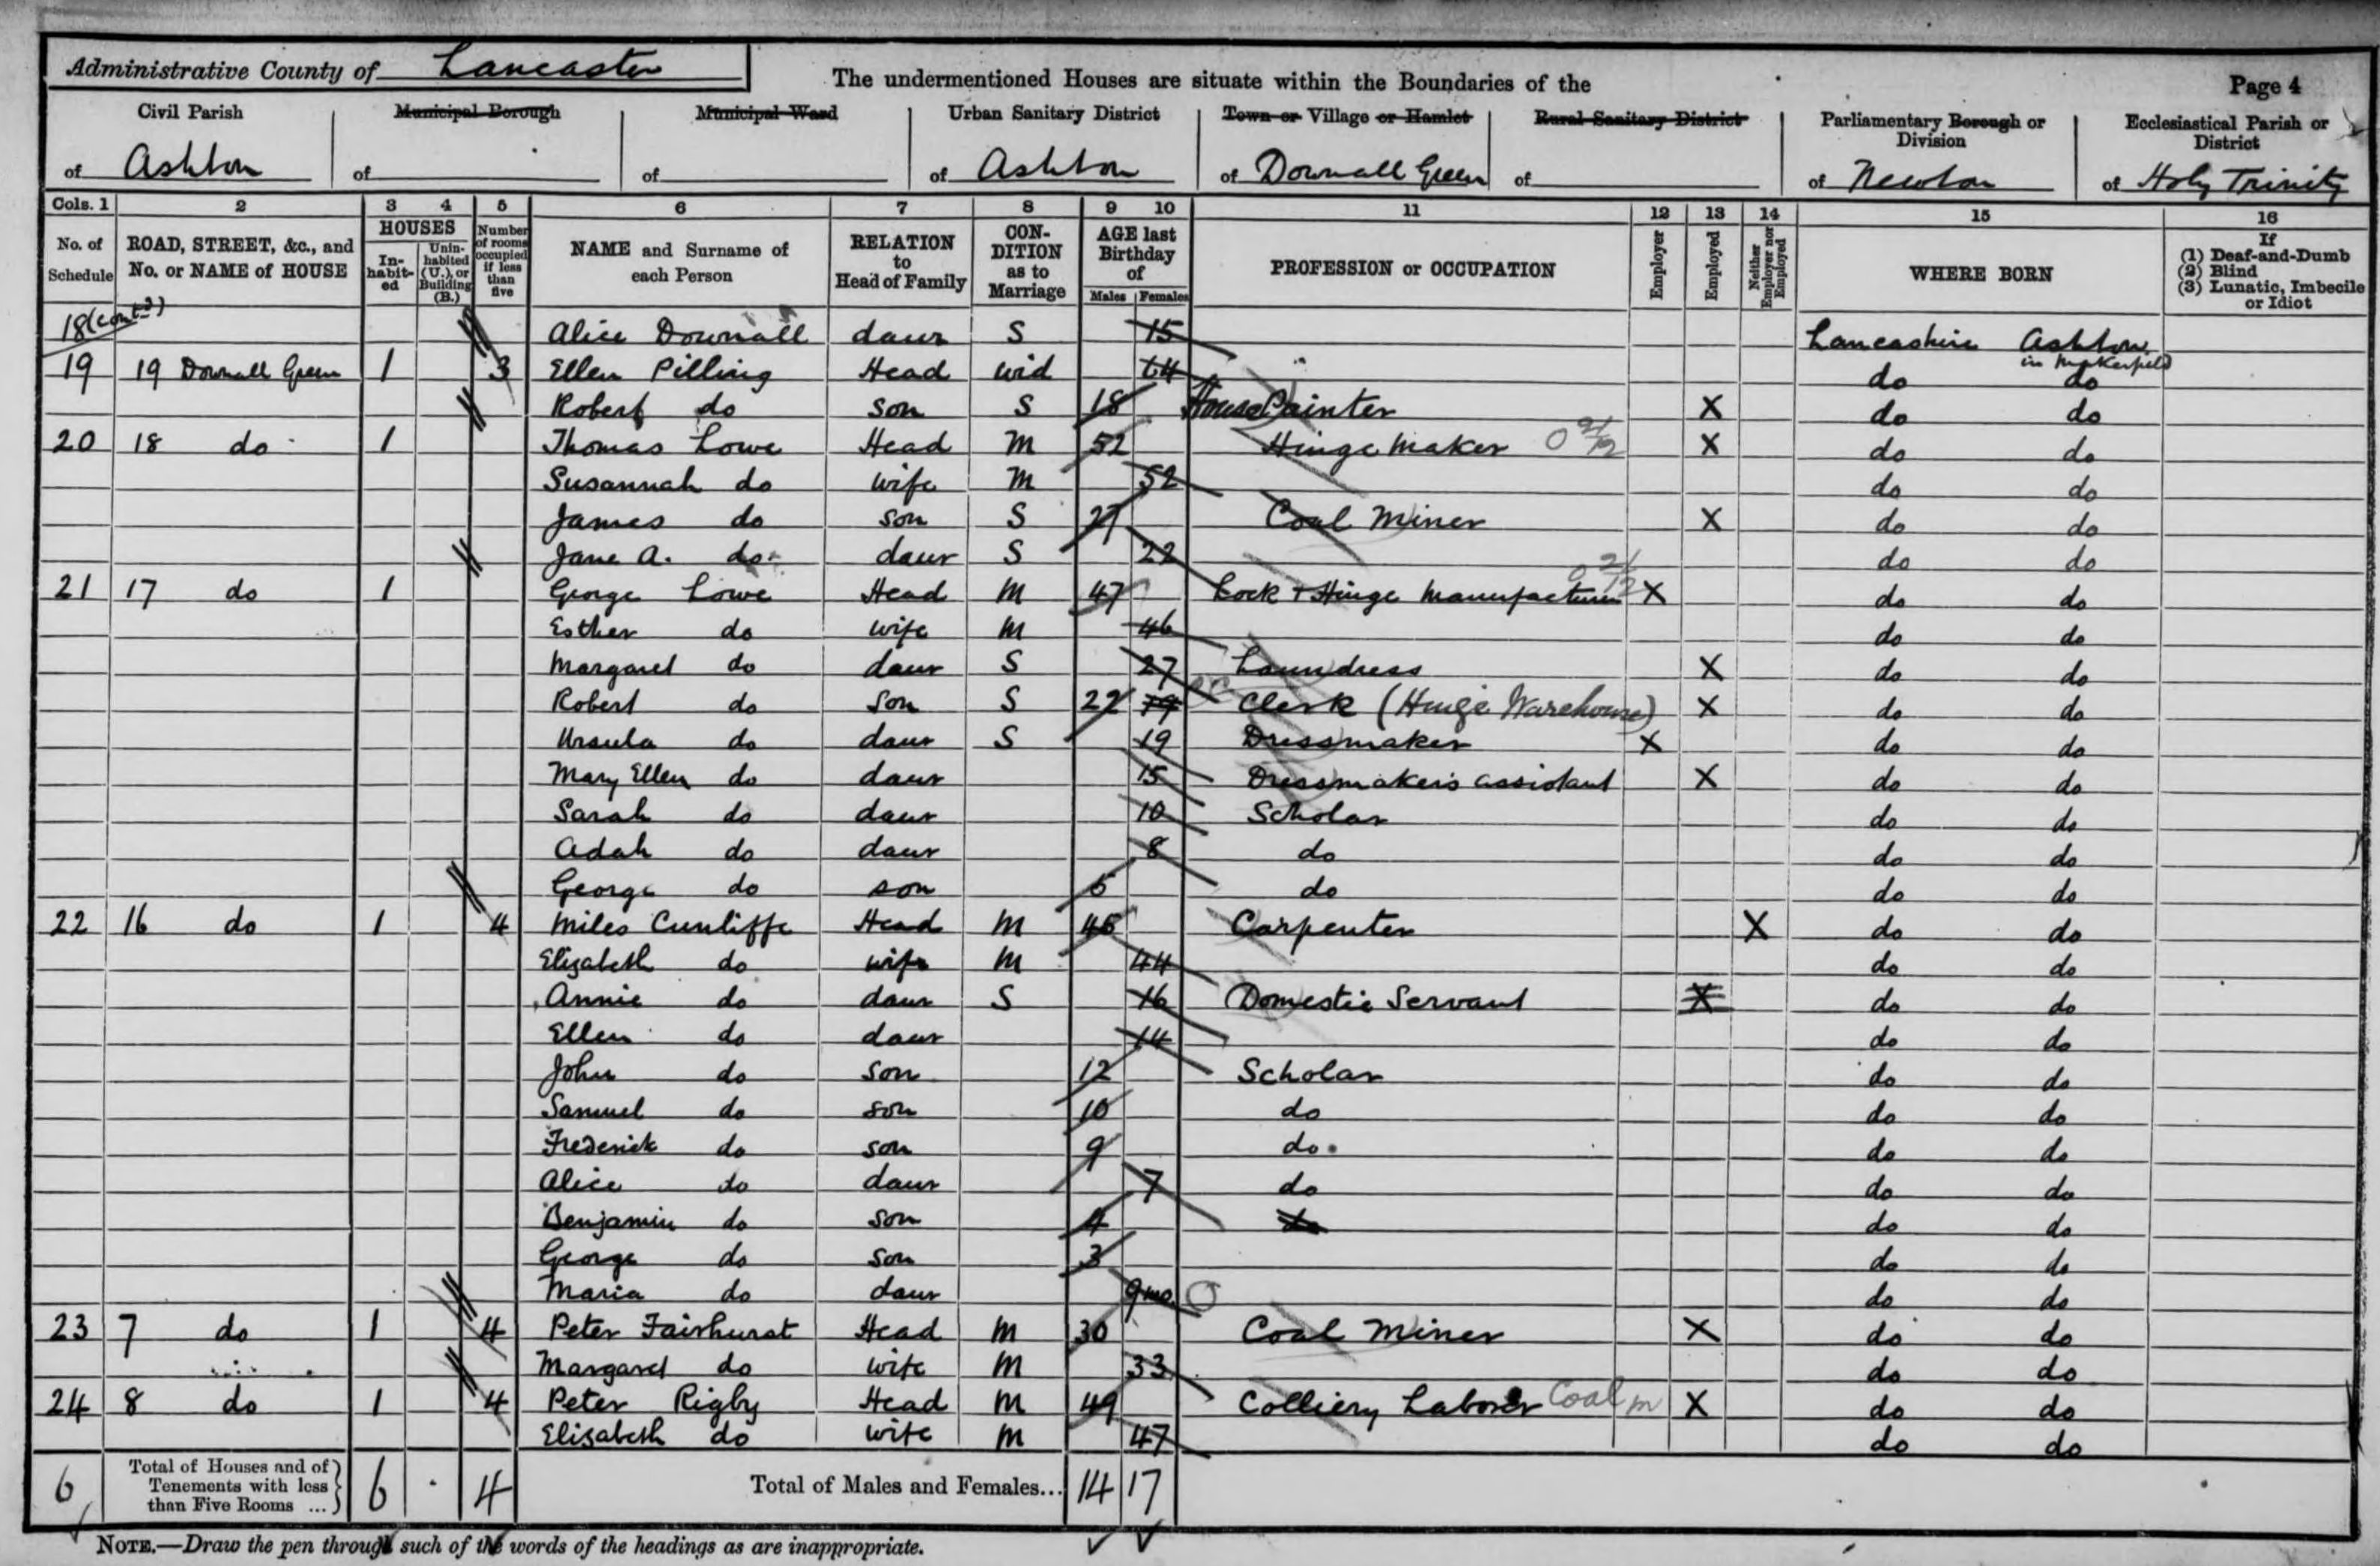 Administrative County of Lancaster
The undermentioned Houses are situate within the Boundaries of the
Page 4
Civil Parish of Ashton
Municipal Borough of
Municipal Ward of
Urban Sanitary District of Ashton
Town or Village or Hamlet of Downall Green
Rural Sanitary District of
Parliamentary Borough or Division of Newton
Ecclesiastical Parish or District of Holy Trinity
Cols. 1 2 3 4 5 6 7 8 9 10 11 12 13 14 15 16
No. of Schedule
ROAD, STREET, &c., and No. or NAME of HOUSE
HOUSES
In-habit-ed
Unin-habited (U.), or Building (B.)
Number of rooms occupied if less than five
NAME and Surname of each Person
RELATION to Head of Family
CON-DITION as to Marriage
AGE last Birthday of
Males Females
PROFESSION or OCCUPATION
Employer
Employed
Neither Employer nor Employed
WHERE BORN
If
(1) Deaf-and-Dumb
(2) Blind
(3) Lunatic, Imbecile or Idiot
18 (contd) Alice Downall daur S 15 Lancashire Ashton in Makerfield
19 19 Downall Green 1 3 Ellen Pilling Head wid 64 do do
Robert do son S 18 House Painter X do do
20 18 do 1 Thomas Lowe Head M 52 Hinge Maker X do do
Susannah do wife M 52 do do
James do son S 27 Coal Miner X do do
Jane A. do daur S 22 do do
21 17 do 1 George Lowe Head M 47 Lock & Hinge Manufacturer X do do
Esther do wife M 46 do do
Margaret do daur S 27 Laundress X do do
Robert do Son S 22 19 Clerk (Hinge Warehouse) X do do
Ursula do daur S 19 Dressmaker X do do
Mary Ellen do daur 15 Dressmakers assistant X do do
Sarah do daur 10 Scholar do do
Adah do daur 8 do do do
George do son 5 do do do
22 16 do 1 4 Miles Cunliffe Head M 45 Carpenter X do do
Elizabeth do wife M 44 do do
Annie do daur S 16 Domestic Servant X do do
Ellen do daur 14 do do
John do son 12 Scholar do do
Samuel do son 10 do do do
Frederick do son 9 do do do
Alice do daur 7 do do do
Benjamin do son 4 do do do
George do son 3 do do
Maria do daur 9mo do do
23 7 do 1 4 Peter Fairhurst Head M 30 Coal Miner X do do
Margaret do wife M 33 do do
24 8 do 1 4 Peter Rigby Head M 49 Colliery Laborer Coal m X do do
Elizabeth do wife M 47 do do
6 Total of Houses and of Tenements with less than Five Rooms ... 6 4 Total of Males and Females... 14 17
NOTE.—Draw the pen through such of the words of the headings as are inappropriate.